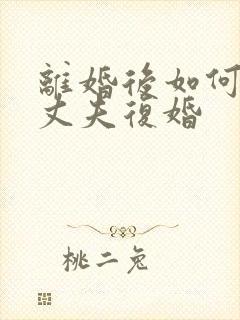 離婚後如何
丈夫復婚
桃二兔